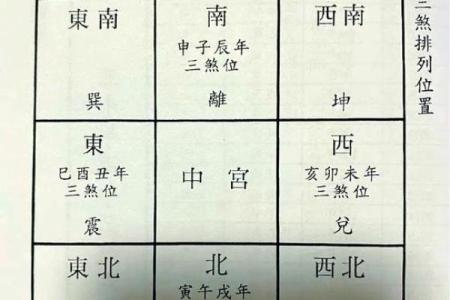 三煞排列位置
東南
巽
南
申子辰年
三煞位
離
西南
坤
東
巳酉丑年
三煞位
震
中宮
西
亥卯未年
三煞位
兌
東北
北
寅午戌年
西北